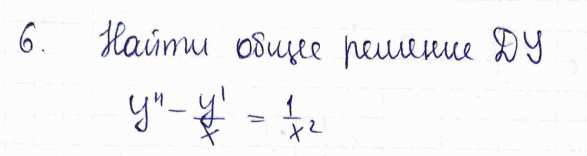 6. Найти общее решение ДУ
y'' - y'/x = 1/x²